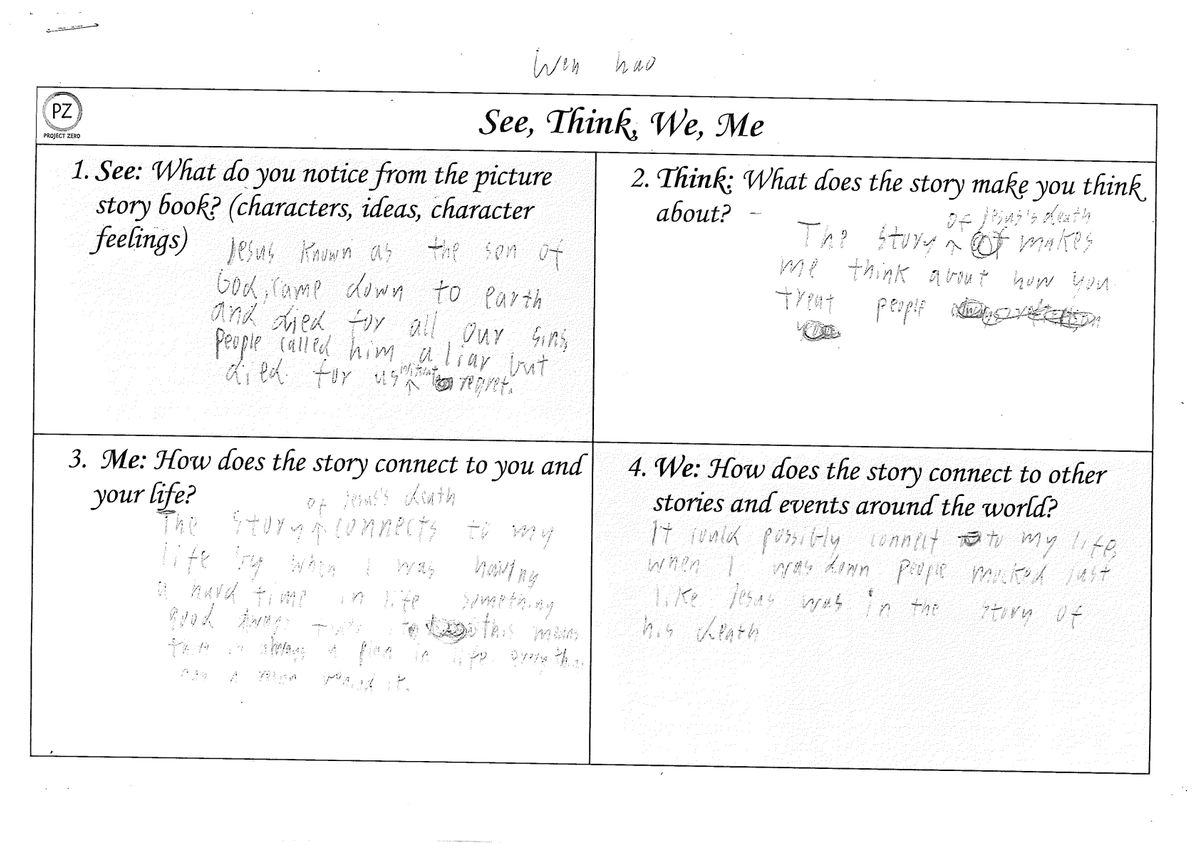 Wen hao
PZ
PROJECT ZERO
See, Think, We, Me
1. See: What do you notice from the picture
story book? (characters, ideas, character
feelings)
Jesus known as the son of
God, came down to earth
and died for all our sins
People called him a liar but
died for us without regret.
2. Think: What does the story make you think
about?
The story of Jesus's death makes
me think about how you
treat people
3. Me: How does the story connect to you and
your life?
The story of Jesus's death connects to my
life by when I was having
a hard time in life something
good this means
always a plan in life
it.
4. We: How does the story connect to other
stories and events around the world?
It could possibly connect to my life,
when I was down people mocked just
like Jesus was in the story of
his death